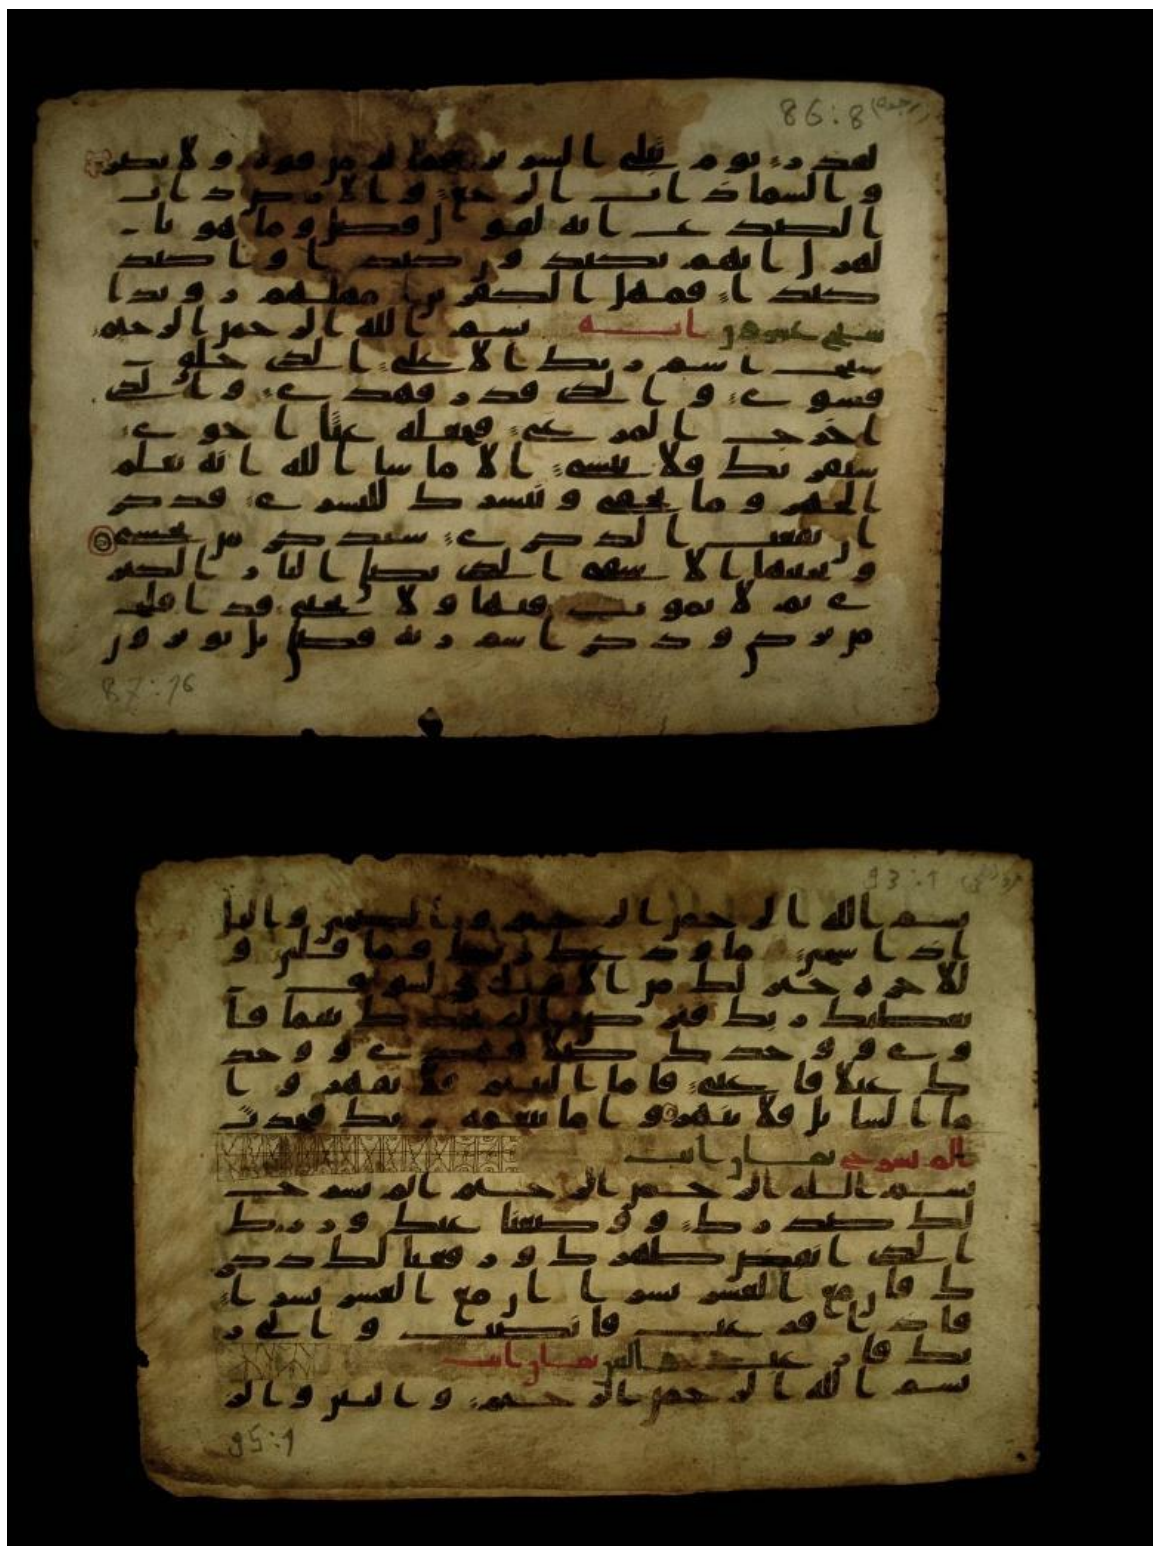 86:8
لقدر يوم تبلى السرير فما له من قوة ولا نصر
والسما ذات الرجع والارض ذات
الصدع انه لقول فصل وما هو با
لهزل انهم يكيدون كيدا واكيد
كيدا فمهل الكفرين امهلهم رويدا
سبح اية بسم الله الرحمن الرحيم
سبح اسم ربك الاعلى الذي خلق
فسوى والذي قدر فهدى والذي
اخرج المرعى فجعله غثا احوى
سنقرئك فلا تنسى الا ما شا الله انه يعلم
الجهر وما يخفى ونيسرك لليسرى فذكر
ان نفعت الذكرى سيذكر من يخشى
ويتجنبها الاشقى الذي يصلى النار الكبر
ى ثم لا يموت فيها ولا يحيى قد افلح
من تزكى وذكر اسم ربه فصلى بل توثرون
87:16
93:1
بسم الله الرحمن الرحيم والضحى واليل
اذا سجى ما ودعك ربك وما قلى و
للاخرة خير لك من الاولى ولسوف
يعطيك ربك فترضى الم يجدك يتيما فا
وى ووجدك ضلا فهدى ووجد
ك عيلا فاغنى فاما اليتيم فلا تقهر وا
ما السايل فلا تنهر واما بنعمة ربك فحدث
الم نشرح ثمان ايات
بسم الله الرحمن الرحيم الم نشرح
لك صدرك ووضعنا عنك وزرك
الذي انقض ظهرك ورفعنا لك ذكر
ك فان مع العسر يسرا ان مع العسر يسرا
فاذا فرغت فانصب والى ر
بك فارغب والتين ثمان ايات
بسم الله الرحمن الرحيم والتين والز
95:1